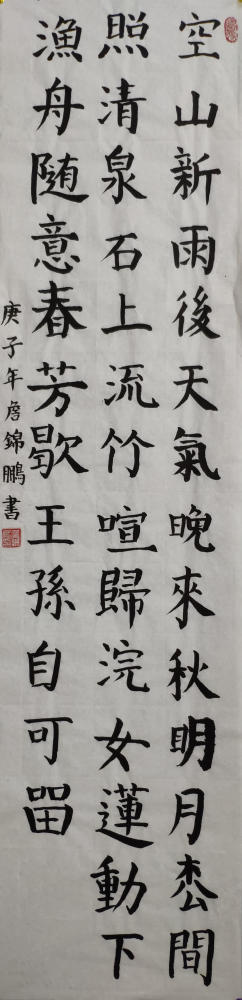 空山新雨後天氣晚來秋明月枩間
照清泉石上流竹喧歸浣女蓮動下
漁舟随意春芳歇王孫自可留
庚子年詹錦鵬書